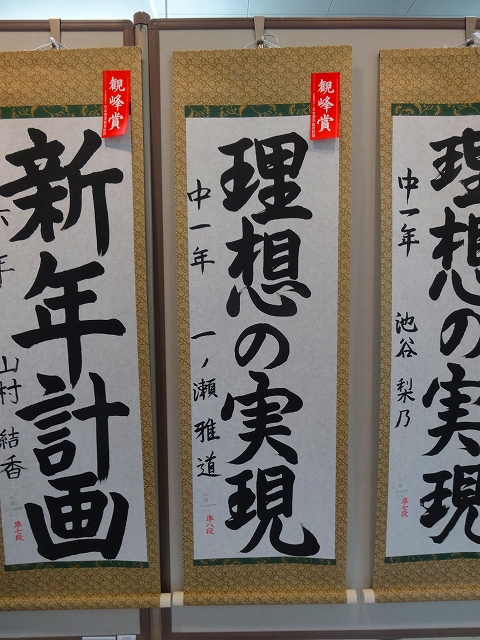 観峰賞
新年計画
六年 山村結香
準七段
観峰賞
理想の実現
中一年 一ノ瀬雅道
準八段
理想の実現
中一年 池谷梨乃
準七段